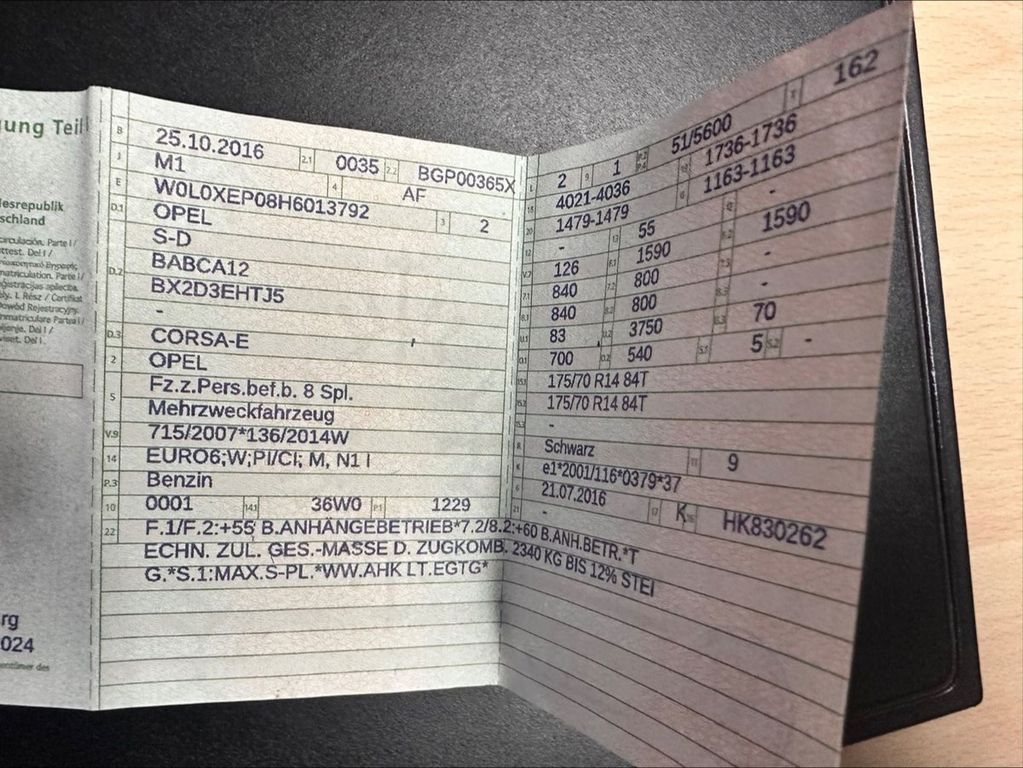 ung Teil
esrepublik
schland
B 25.10.2016 2.1 0035 2.2 BGP00365X
J M1 4 AF
E W0L0XEP08H6013792 3 2
D.1 OPEL
S-D
D.2 BABCA12
BX2D3EHTJ5
-
D.3 CORSA-E
2 OPEL
5 Fz.z.Pers.bef.b. 8 Spl.
Mehrzweckfahrzeug
V.9 715/2007*136/2014W
14 EURO6;W;PI/CI; M, N1 I
P.3 Benzin
10 0001 14.1 36W0 P.1 1229
22 F.1/F.2:+55 B.ANHÄNGEBETRIEB*7.2/8.2:+60 B.ANH.BETR.*T
ECHN. ZUL. GES.-MASSE D. ZUGKOMB. 2340 KG BIS 12% STEI
G.*S.1:MAX.S-PL.*WW.AHK LT.EGTG*
L 2 9 1 51/5600 T 162
18 4021-4036 1736-1736
20 1479-1479 G 1163-1163
12 - 13 55 -
V.7 126 F.1 1590 F.2 1590
7.1 840 7.2 800 -
8.1 840 8.2 800 -
U.1 83 U.2 3750 U.3 70
O.1 700 O.2 540 S.1 5 S.2 -
15.1 175/70 R14 84T
15.2 175/70 R14 84T
15.3 -
R Schwarz 11 9
K e1*2001/116*0379*37
6 21.07.2016 17 K 16 HK830262
21 -
rg
024